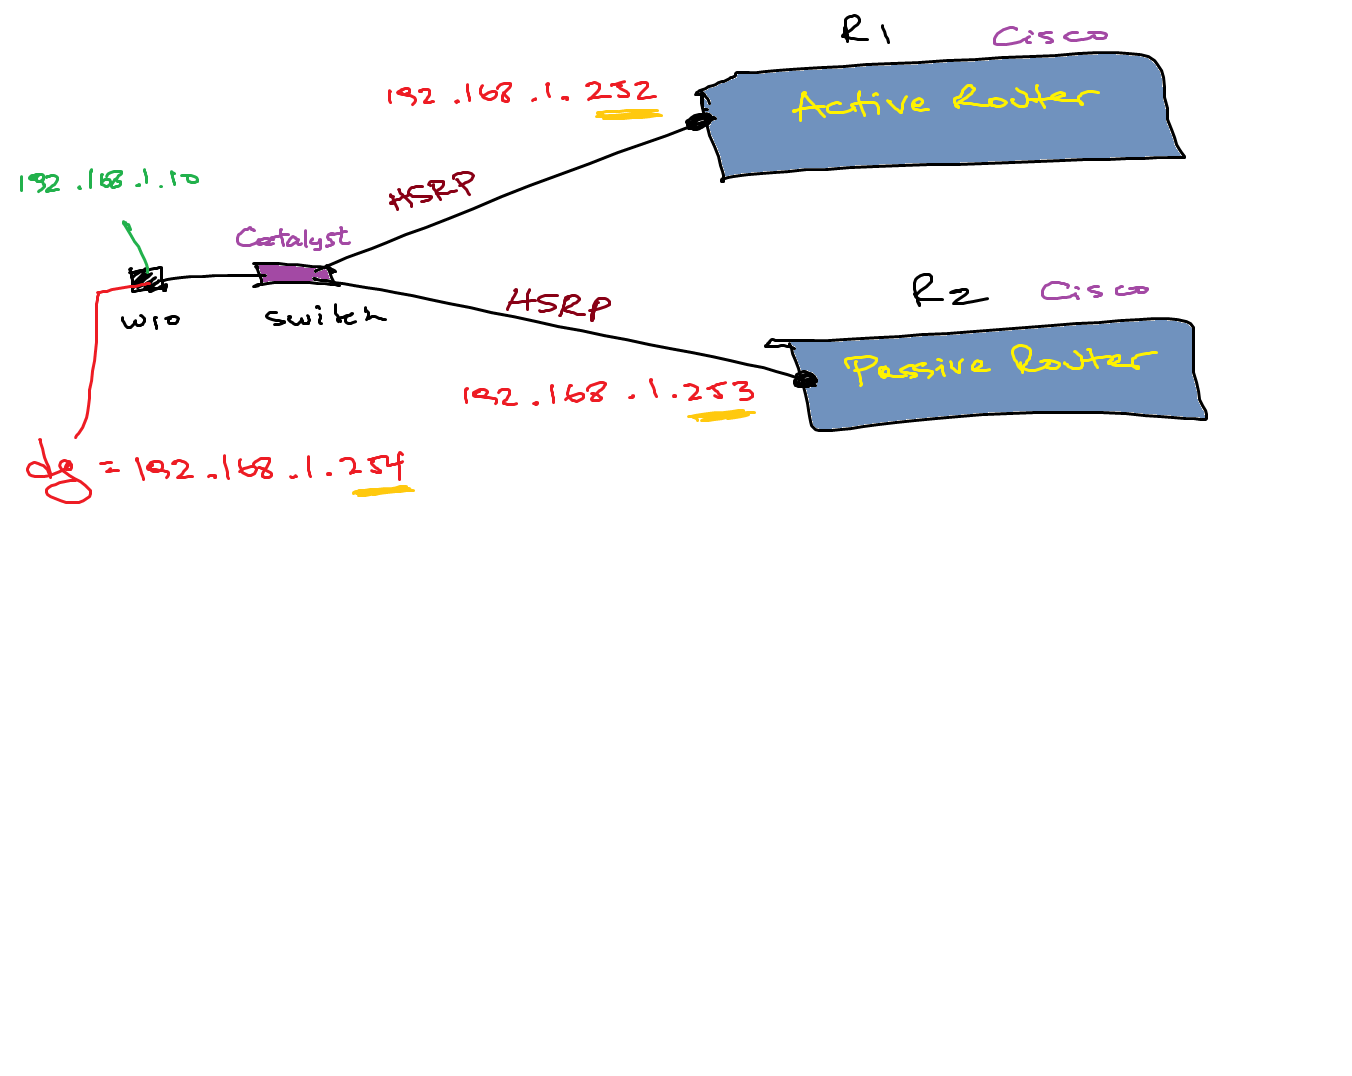 R1 Cisco
192.168.1.252
Active Router
192.168.1.10
HSRP
Catalyst
W10
switch
HSRP
R2 Cisco
Passive Router
192.168.1.253
dg = 192.168.1.254